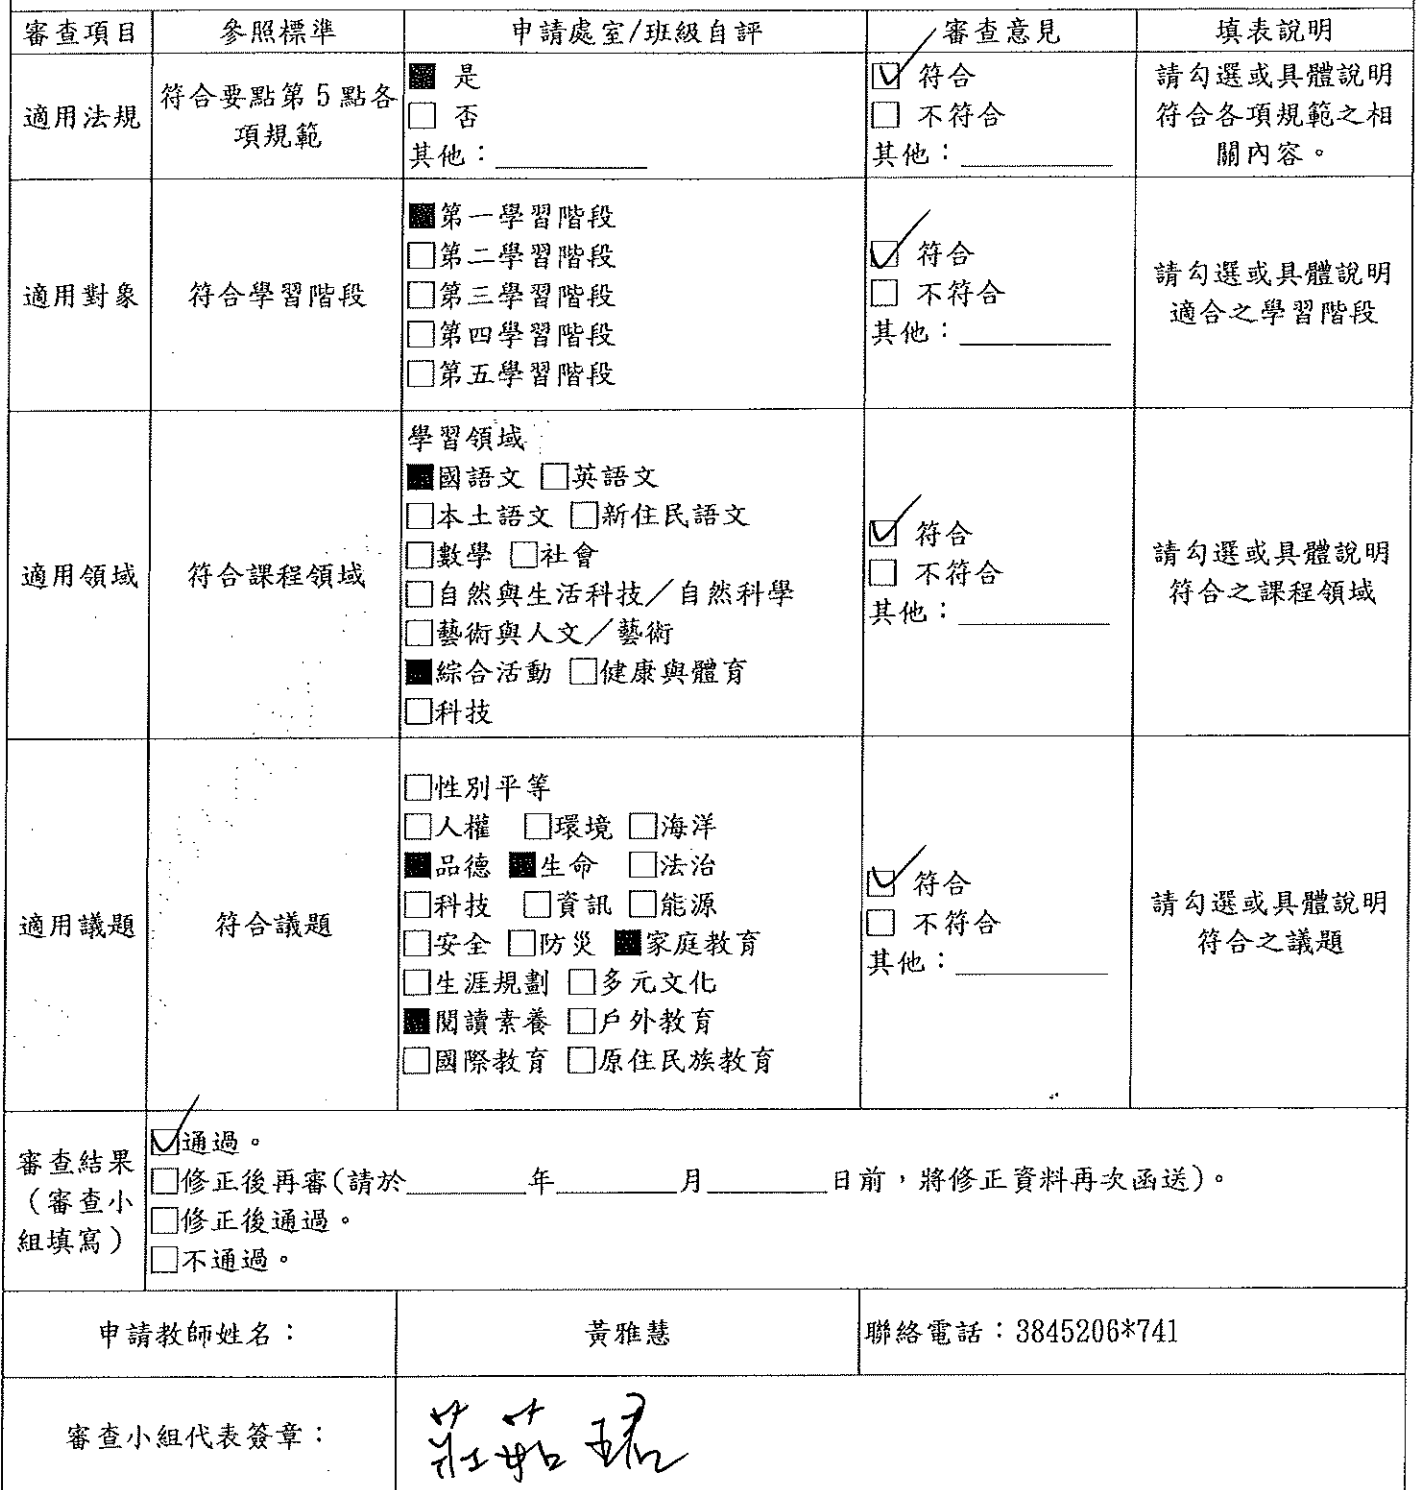 審查項目 參照標準 申請處室/班級自評 審查意見 填表說明
適用法規
符合要點第5點各
項規範
■ 是
□ 否
其他：
☑ 符合
□ 不符合
其他：
請勾選或具體說明
符合各項規範之相
關內容。
適用對象
符合學習階段
■第一學習階段
□第二學習階段
□第三學習階段
□第四學習階段
□第五學習階段
☑ 符合
□ 不符合
其他：
請勾選或具體說明
適合之學習階段
適用領域
符合課程領域
學習領域
■國語文 □英語文
□本土語文 □新住民語文
□數學 □社會
□自然與生活科技／自然科學
□藝術與人文／藝術
■綜合活動 □健康與體育
□科技
☑ 符合
□ 不符合
其他：
請勾選或具體說明
符合之課程領域
適用議題
符合議題
□性別平等
□人權 □環境 □海洋
■品德 ■生命 □法治
□科技 □資訊 □能源
□安全 □防災 ■家庭教育
□生涯規劃 □多元文化
■閱讀素養 □戶外教育
□國際教育 □原住民族教育
☑ 符合
□ 不符合
其他：
請勾選或具體說明
符合之議題
審查結果
（審查小
組填寫）
☑通過。
□修正後再審(請於________年________月________日前，將修正資料再次函送)。
□修正後通過。
□不通過。
申請教師姓名： 黃雅慧 聯絡電話：3845206*741
審查小組代表簽章： 莊茹珺